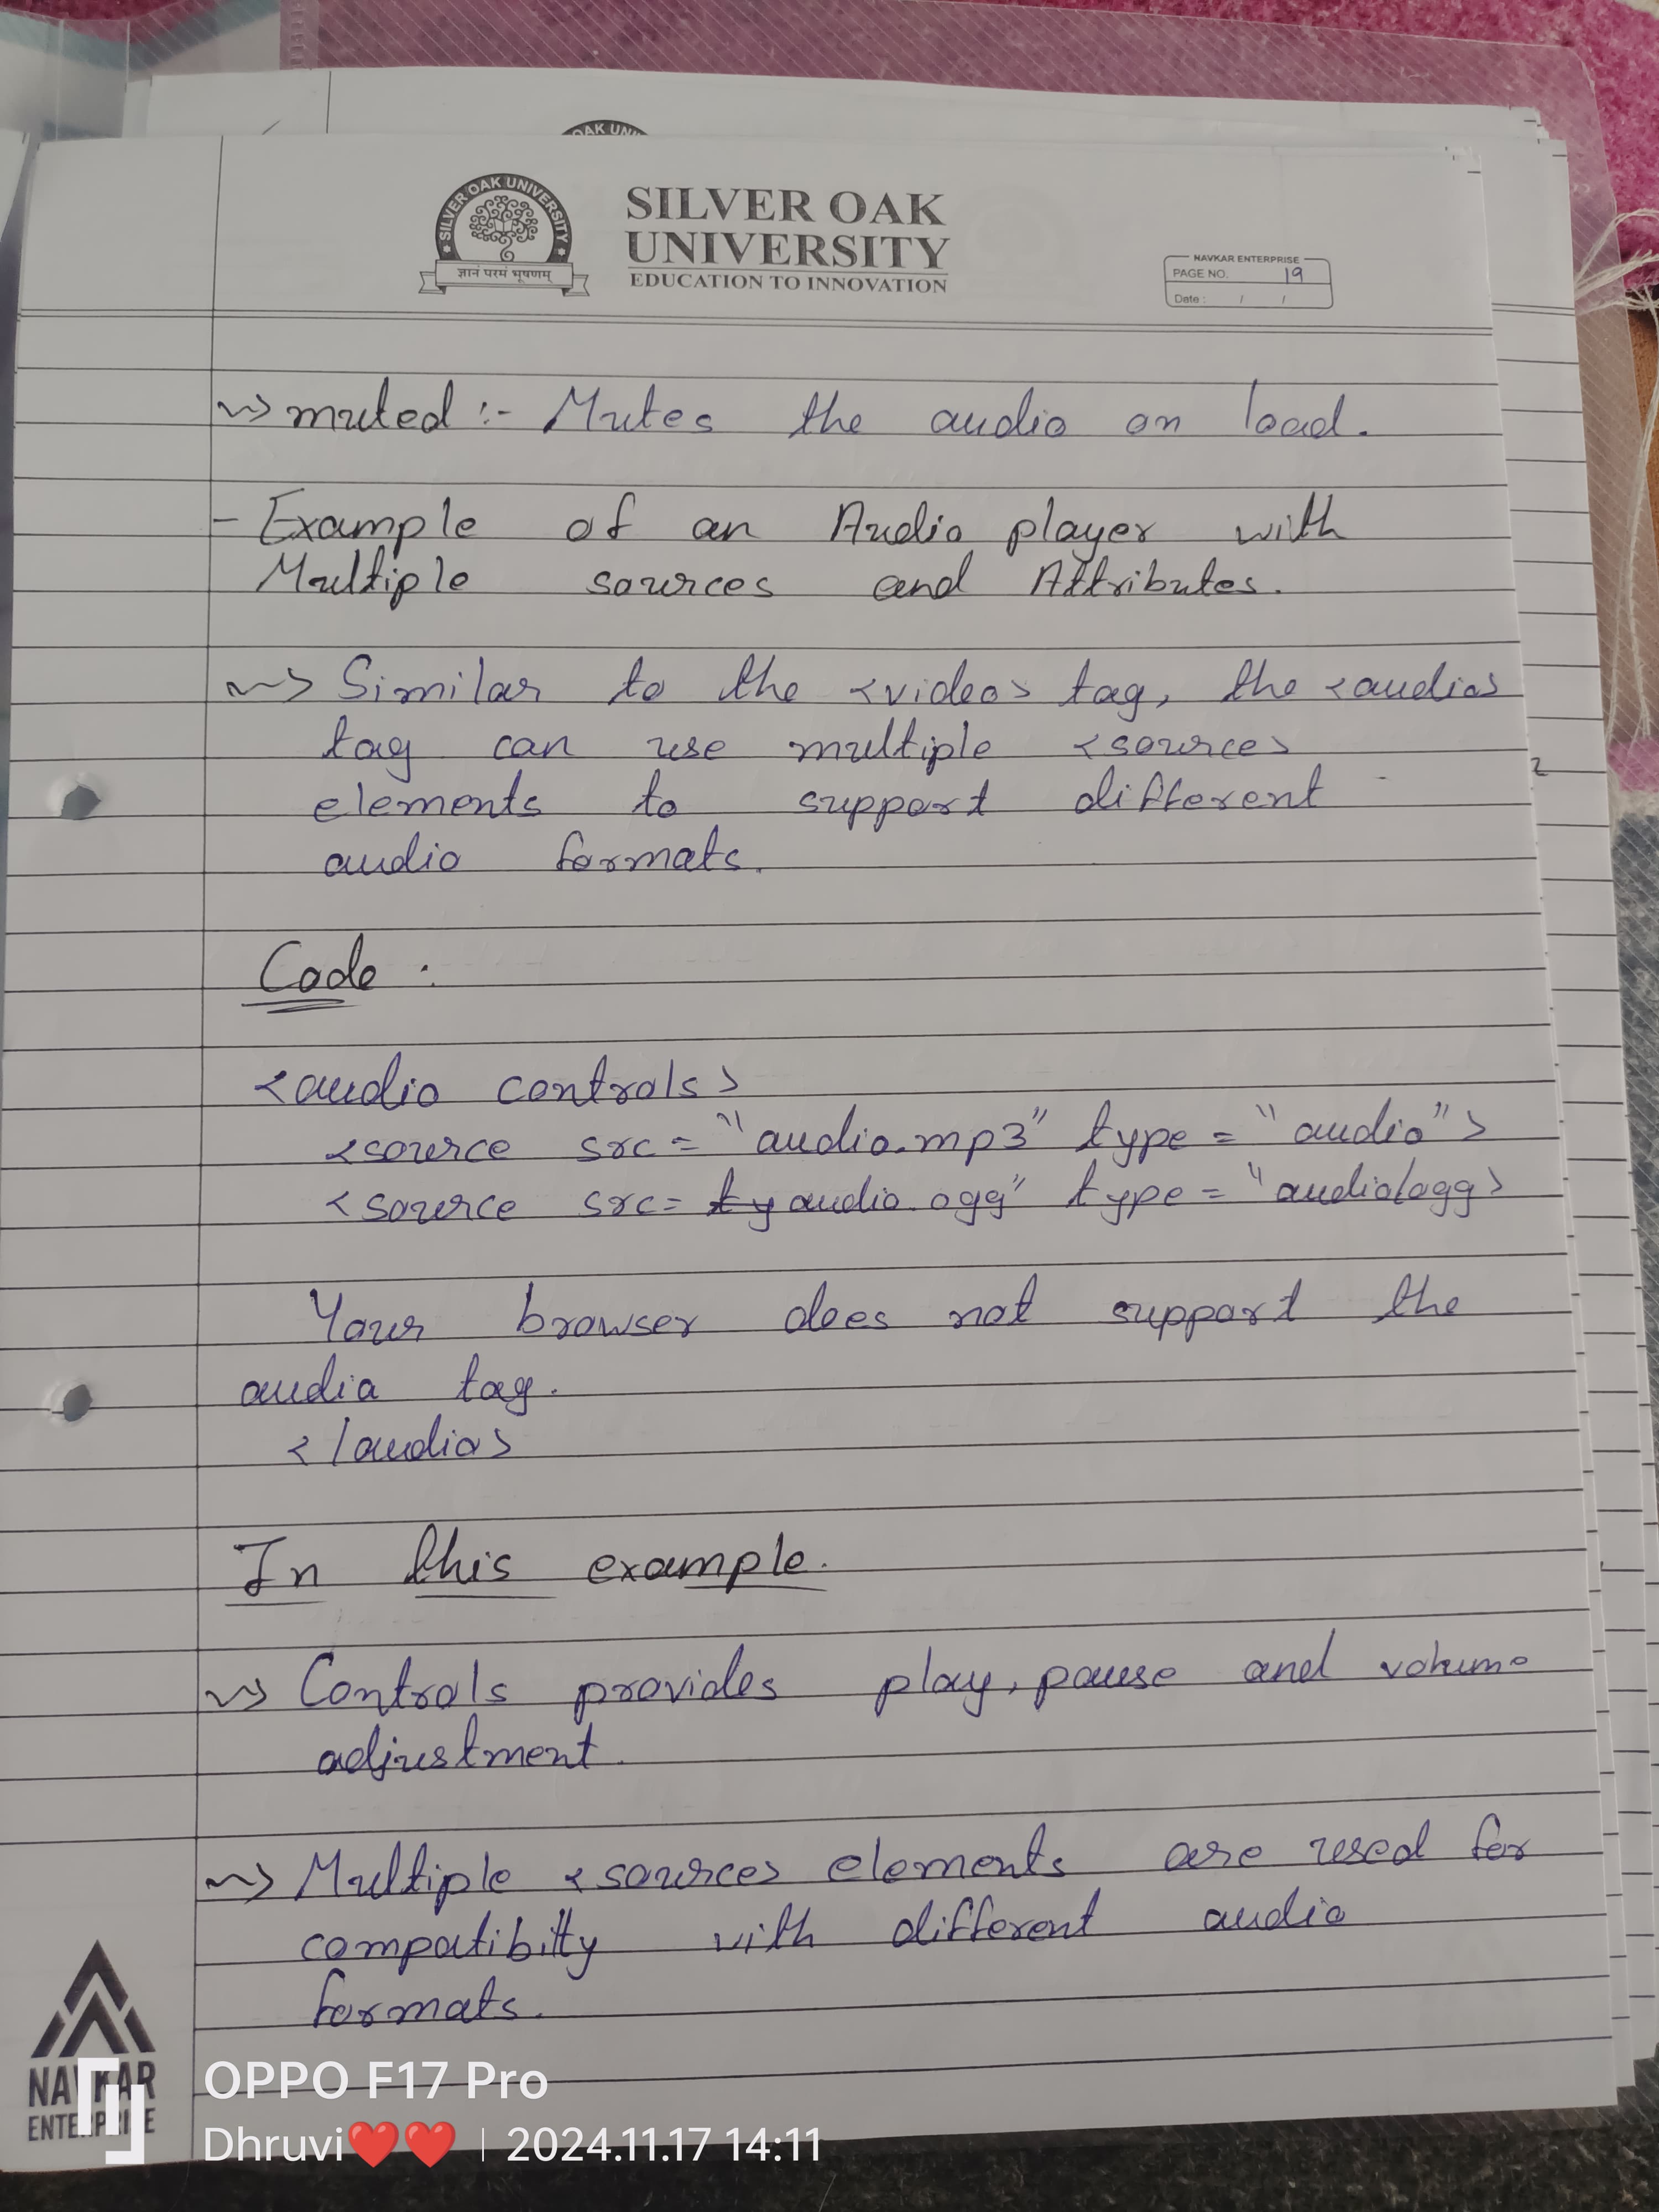 OAK UNIV
SILVER OAK UNIVERSITY
ज्ञानं परमं भूषणम्
SILVER OAK
UNIVERSITY
EDUCATION TO INNOVATION
NAVKAR ENTERPRISE
PAGE NO. 19
Date : / /
~> muted :- Mutes the audio on load.
- Example of an Audio player with
Multiple sources and Attributes.
~> Similar to the <video> tag, the <audio>
tag can use multiple <source>
elements to support different
audio formats.
Code :
<audio controls>
<source src = "audio.mp3" type = "audio">
<source src = ty audio.ogg" type = "audio/ogg>
Your browser does not support the
audio tag.
</audio>
In this example.
~> Controls provides play, pause and volume
adjustment.
~> Multiple <source> elements are used for
compatibilty with different audio
formats.
NAVKAR
ENTERPRISE
OPPO F17 Pro
Dhruvi❤️❤️ | 2024.11.17 14:11